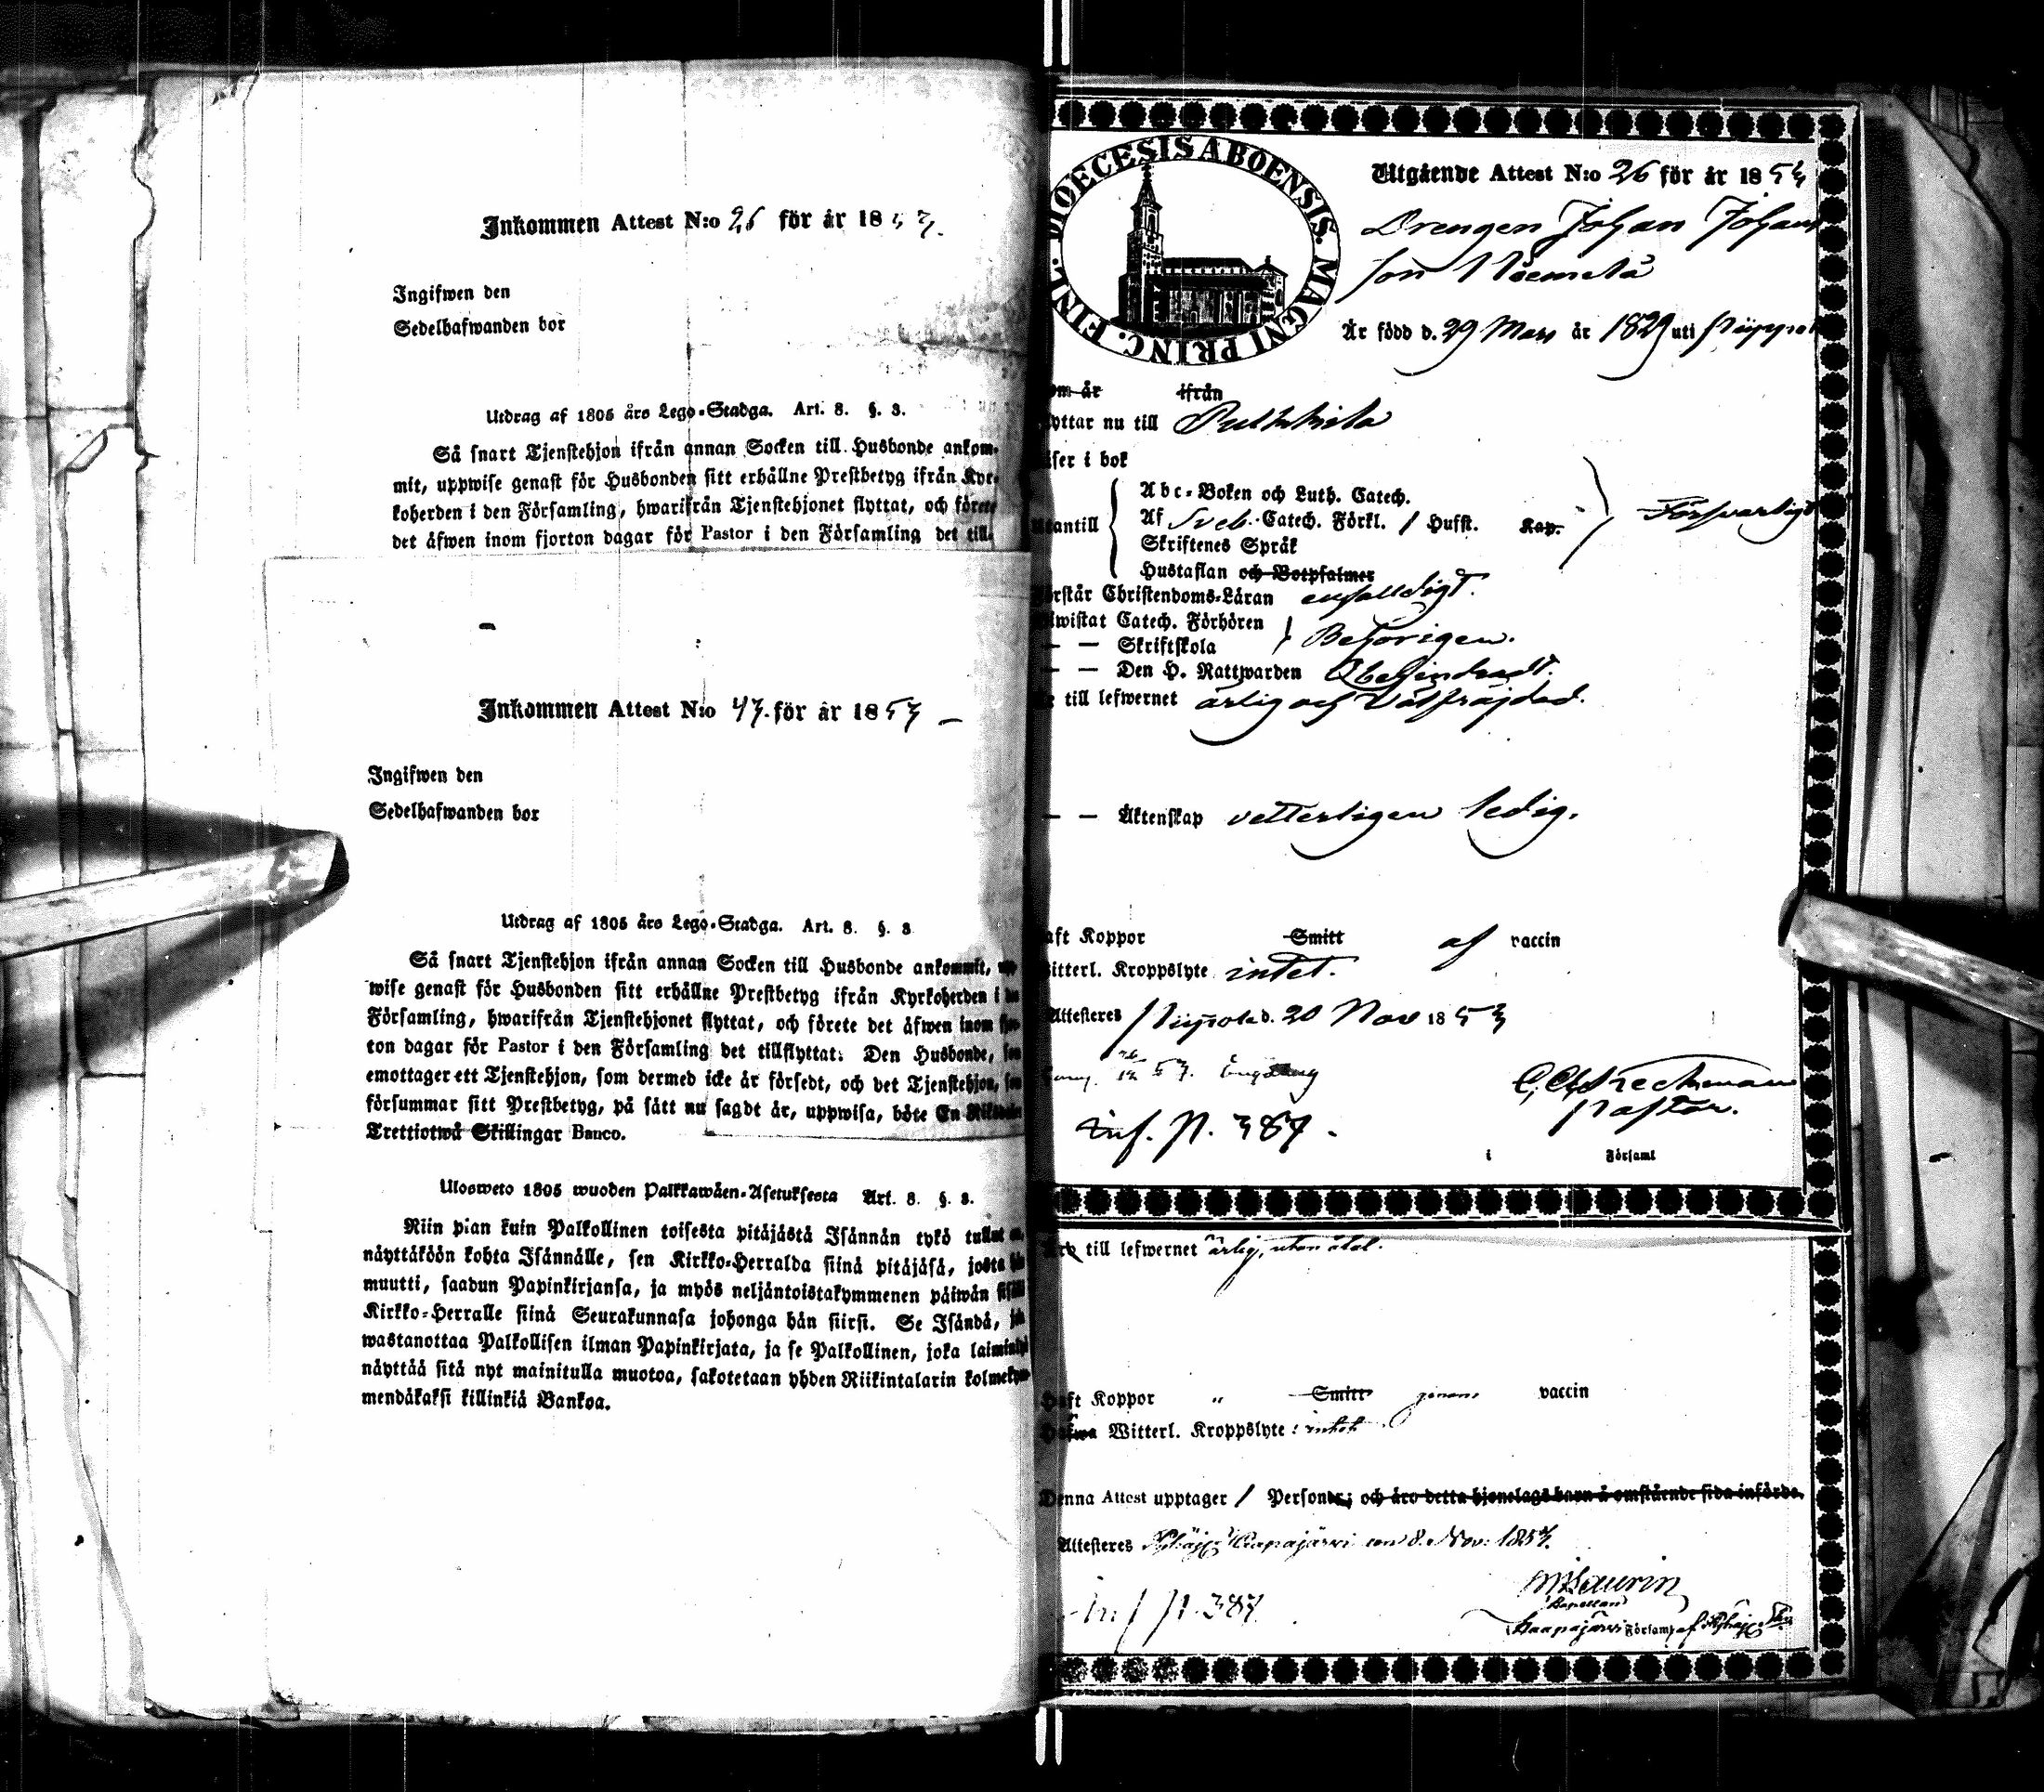 Inkommen Attest N:o 26 för år 1853.
Ingifwen den
Sedelhafwanden bor
Utdrag af 1805 års Lego-Stadga. Art. 8. §. 3.
Så snart Tjenstehjon ifrån annan Socken till Husbonde ankom-
mit, uppwise genast för Husbonden sitt erhållne Prestbetyg ifrån Kyr-
koherden i den Församling, hwarifrån Tjenstehjonet flyttat, och förete
det äfwen inom fjorton dagar för Pastor i den Församling det till-
Inkommen Attest N:o 43. för år 1853
Ingifwen den
Sedelhafwanden bor
Utdrag af 1805 års Lego-Stadga. Art. 8. §. 3
Så snart Tjenstehjon ifrån annan Socken till Husbonde ankommit, up
wise genast för Husbonden sitt erhållne Prestbetyg ifrån Kyrkoherden i den
Församling, hwarifrån Tjenstehjonet flyttat, och förete det äfwen inom fjor
ton dagar för Pastor i den Församling det tillflyttat. Den Husbonde, som
emottager ett Tjenstehjon, som dermed icke är försedt, och det Tjenstehjon, som
försummar sitt Prestbetyg, på sätt nu sagdt är, uppwisa, böte En Riksdaler
Trettiotwå Skillingar Banco.
Ulosweto 1805 wuoden Palkkawäen-Asetuksesta Art. 8. §. 3.
Niin pian kuin Palkollinen toisesta pitäjästä Isännän tykö tullut on,
näyttäköön kohta Isännälle, sen Kirkko-Herralda siinä pitäjäsä, josta hän
muutti, saadun Papinkirjansa, ja myös neljäntoistakymmenen päiwän sisällä
Kirkko-Herralle siinä Seurakunnasa johonga hän siirsi. Se Isändä, joka
wastanottaa Palkollisen ilman Papinkirjata, ja se Palkollinen, joka laiminlyö
näyttää sitä nyt mainitulla muotoa, sakotetaan yhden Riikintalarin kolmekym
mendäkaksi killinkiä Bankoa.
FINL. DIOECESIS ABOENSIS. MAGNI PRINC.
Utgående Attest N:o 26 för år 1853
Drengen Johan Johans
son Niemelä
Är född d. 29 Mars år 1829 uti Piippola
om år ifrån
yttar nu till Pulkkila
äser i bok
Abc-Boken och Luth. Catech.
Utantill Af Sveb. Catech. Förkl. / Husst. Kap. Försvarligt
Skriftenes Språk
Hustaflan och Botpsalmer
örstår Christendoms-Läran enfaldigt.
wistat Catech. Förhören
— — Skriftskola Behörigen.
— — Den H. Nattwarden Obehindradt.
till lefwernet ärlig och välfräjdad.
— — Äktenskap vetterligen ledig.
aft Koppor Smitt af vaccin
itterl. Kroppslyte intet.
Attesteres Piippola d. 20 Nov 1853
Pastor.
Inf. P. 387.
i Församl
Är till lefwernet ärlig, utan åtal.
Haft Koppor " Smitt genom vaccin
Hafwa Witterl. Kroppslyte: intet
Denna Attest upptager 1 Personer; och äro detta hjonelags barn å omstående sida införde.
Attesteres Pyhäjoki Haapajärvi den 8. Nov: 1853.
Inf P. 387
Kapellan
Haapajärvi Församl af